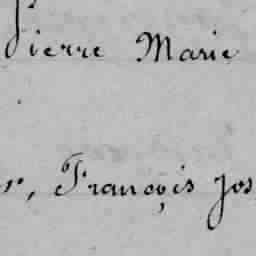 Pierre Marie
r, François Jos